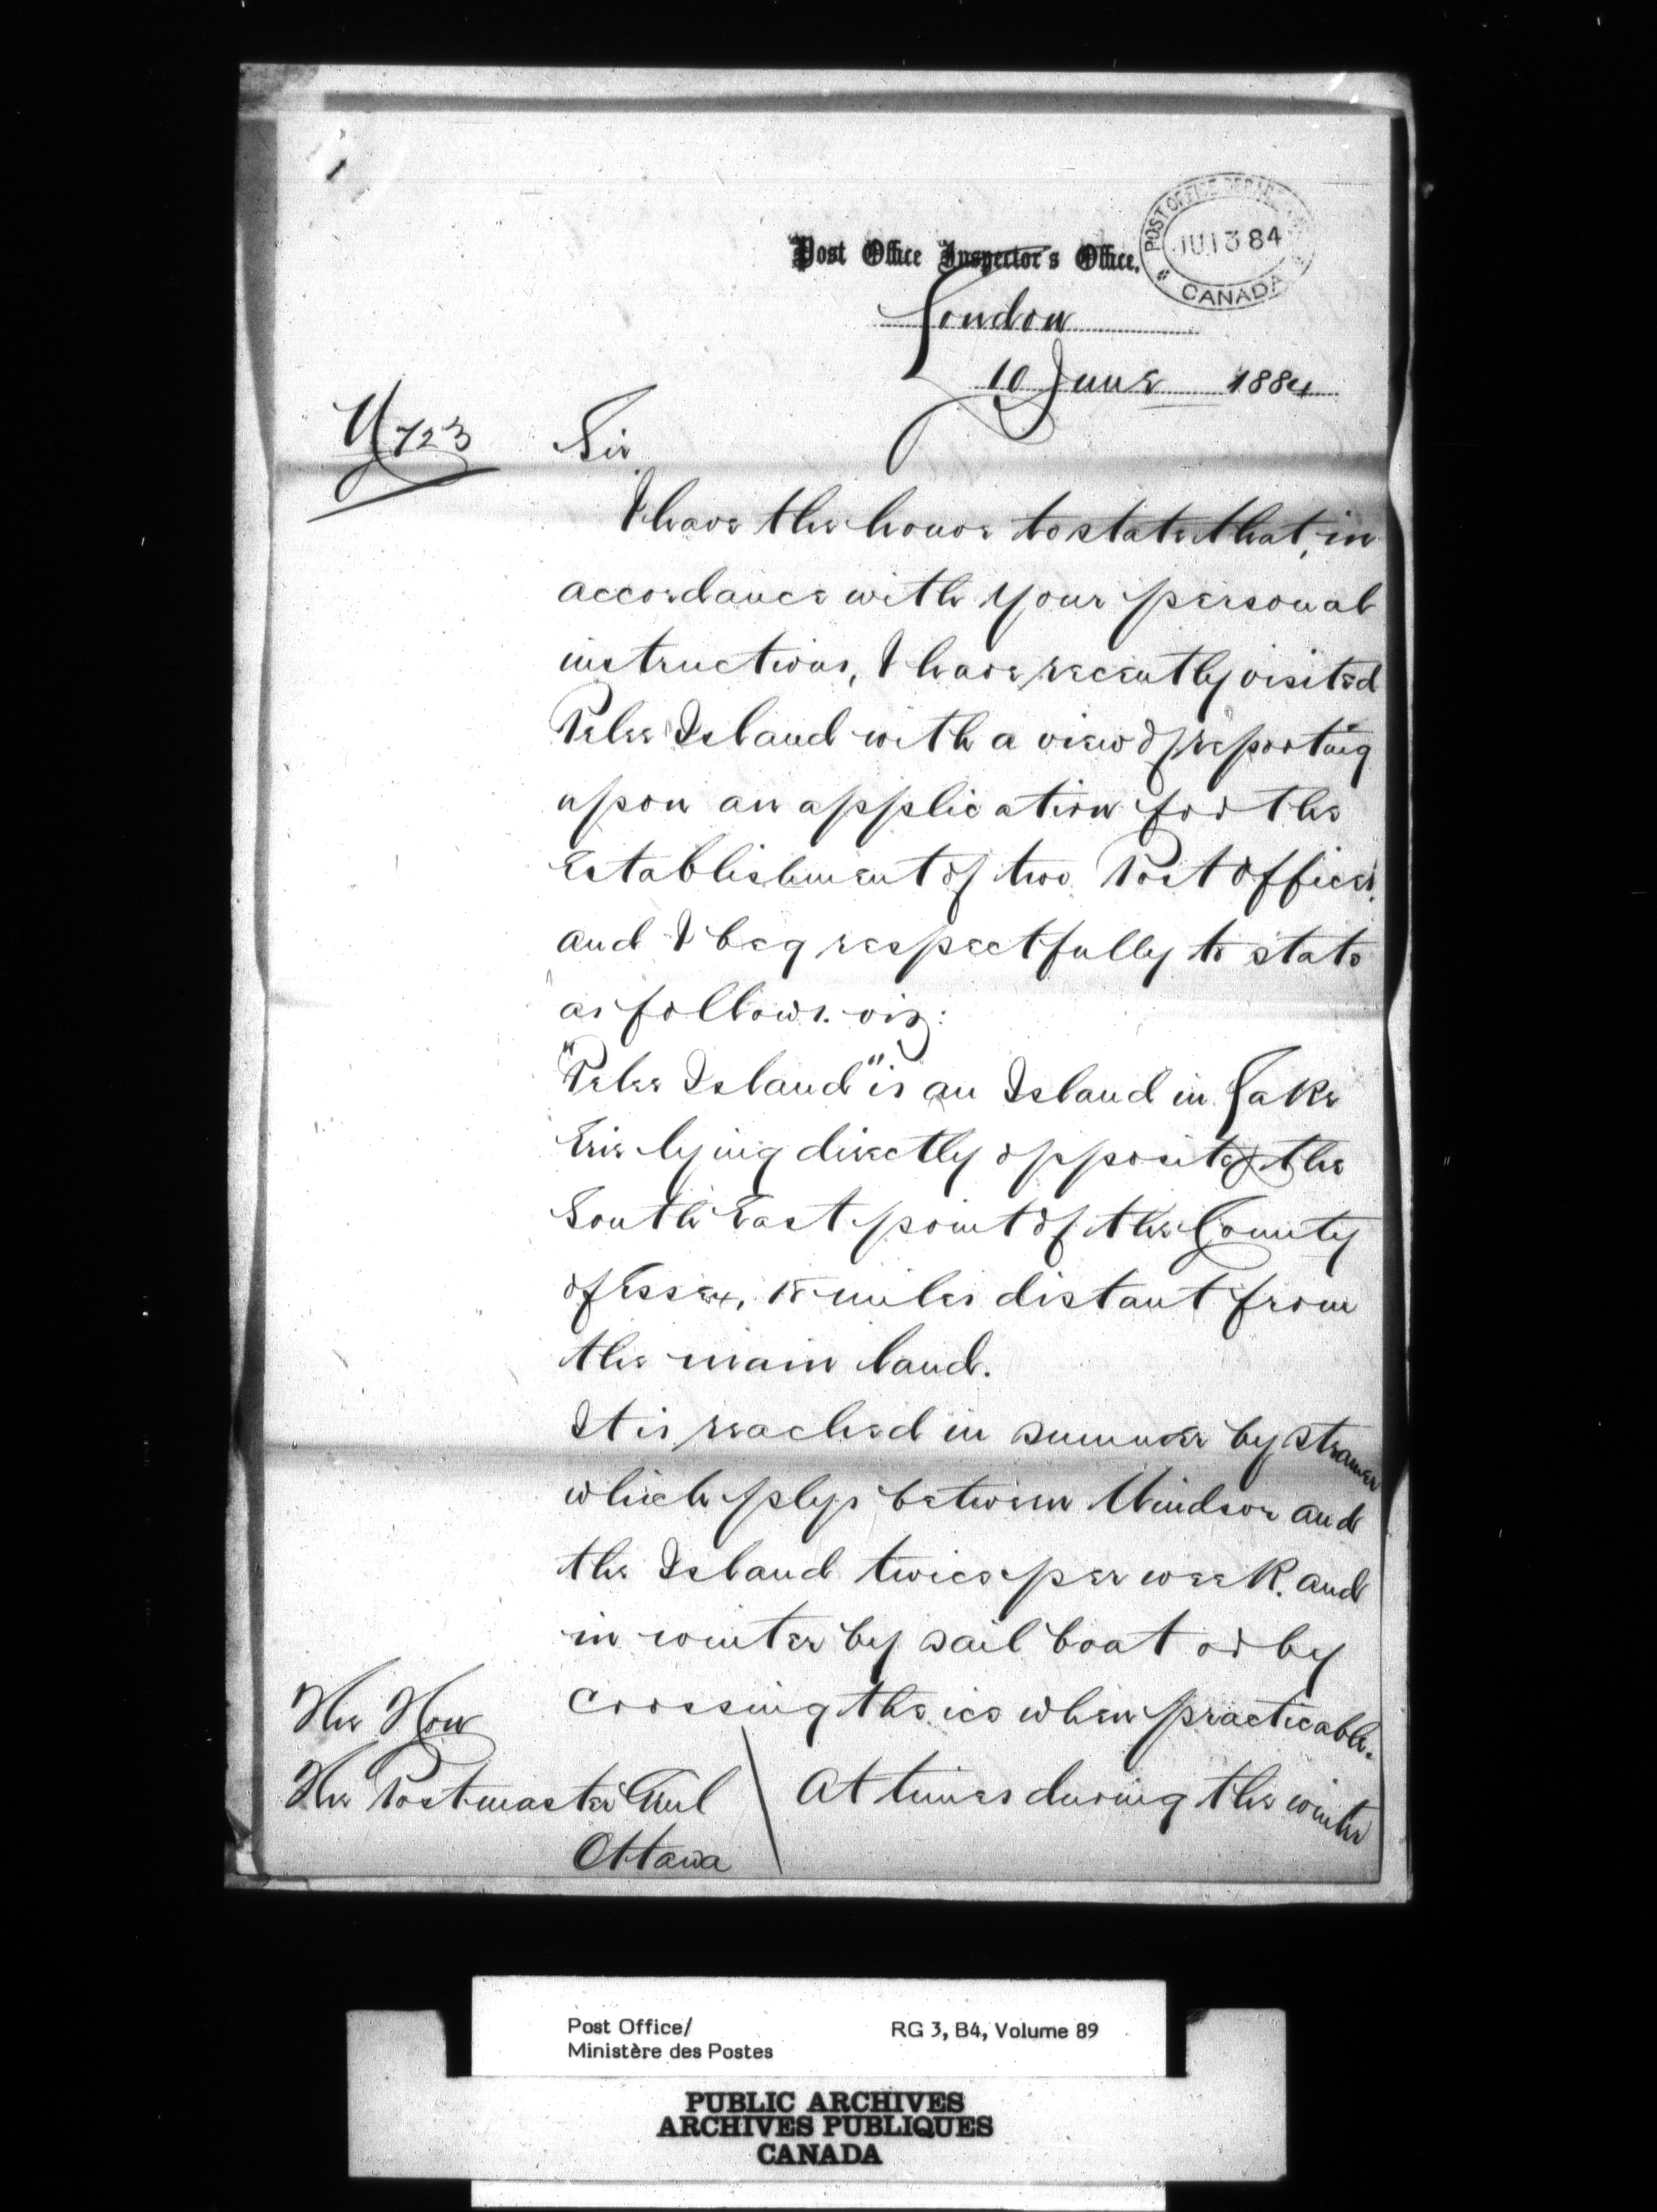 Post Office Inspector's Office.
POST OFFICE DEPARTMENT
JU 13 84
CANADA
London
10 June 1884
723
Sir
I have the honor to state that, in
accordance with your personal
instructions, I have recently visited
Pelee Island with a view of reporting
upon an application for the
Establishment of two Post Offices.
and I beg respectfully to state
as follows. viz:
"Pelee Island" is an Island in Lake
Erie lying directly opposite the
South East point of the County
of Essex, miles distant from
the main land.
It is reached in summer by steamer
which plys between Windsor and
the Island twice per week. and
in winter by sail boat or by
crossing the ice when practicable.
At times during the winter
The Hon
The Postmaster Genl
Ottawa
Post Office/
Ministère des Postes
RG 3, B4, Volume 89
PUBLIC ARCHIVES
ARCHIVES PUBLIQUES
CANADA